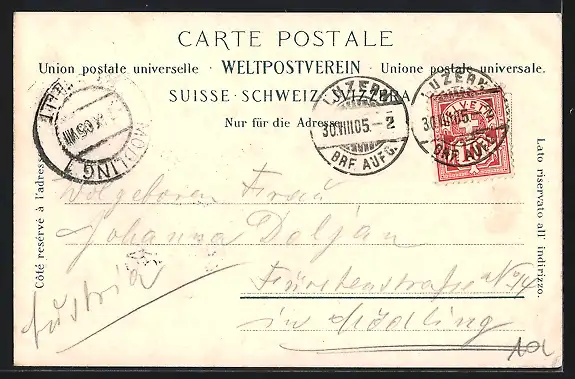 CARTE POSTALE
Union postale universelle · WELTPOSTVEREIN · Unione postale universale.
SUISSE · SCHWEIZ · SVIZZERA
Nur für die Adresse
LUZERN
30.VIII.05.–2
BRF. AUFG.
LUZERN
30.VIII.05.
BRF. AUFG.
HELVETIA
MÖDLING
Côté réservé à l'adresse
Lato riservato all' indirizzo.
Wolgeboren Frau
Johanna Doljan
Fürstenstraße No 14
in Mödling
Austria